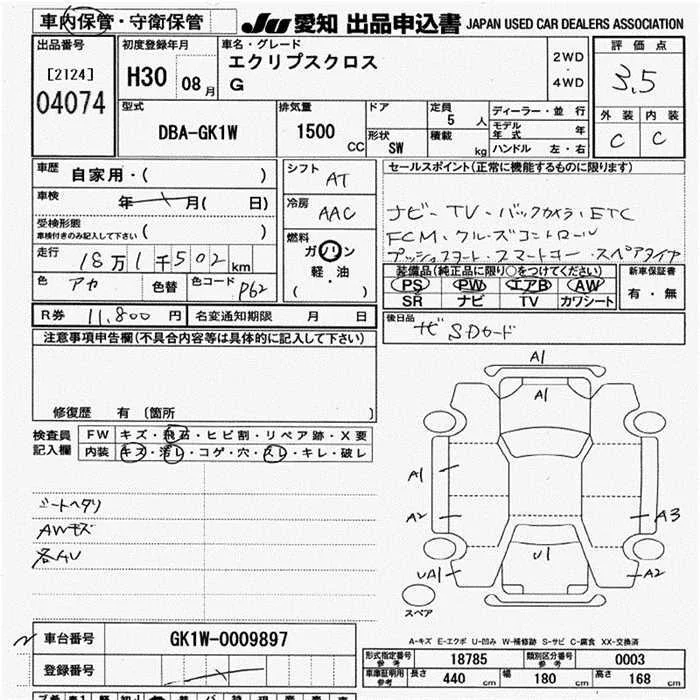 車内保管・守衛保管 JU 愛知 出品申込書 JAPAN USED CAR DEALERS ASSOCIATION
出品番号 初度登録年月 車名・グレード 評価点
[2124] H30 08月 エクリプスクロス 2WD・4WD 3.5
04074 G
型式 排気量 ドア 定員 ディーラー・並行 外装 内装
DBA-GK1W 1500 CC 5人 モデル年式 年 C C
形状 SW 積載 kg ハンドル 左・右
車歴 自家用・( ) シフト AT セールスポイント(正常に機能するものに限ります)
車検 年 月( 日) 冷房 AAC ナビ-TV-バックカメラ・ETC
受検形態 車検付きのみ記入して下さい ( ) 燃料 FCM・クルーズコントロール
走行 18万1千502km ガソリン プッシュスタート・スマートキー・スペアタイヤ
色 アカ 色替 色コード P62 軽・油 ( ) 装備品(純正品に限り○をつけてください) 新車保証書
PS PW エアB AW 有・無
SR ナビ TV カワシート
R券 11,800円 名変通知期限 月 日 後日品 ナビSDカード
注意事項申告欄(不具合内容等は具体的に記入して下さい)
修復歴 有 〔箇所 〕
検査員記入欄 FW キズ・飛石・ヒビ割・リペア跡・X要
内装 キズ・汚レ・コゲ・穴・スレ・キレ・破レ
シートヘタリ
AWキズ
各AU
A1
A1
A1
A2 A3
U1
UA1 A2
スペア
A-キズ E-エクボ U-凹み W-補修跡 S-サビ C-腐食 XX-交換済
車台番号 GK1W-0009897
登録番号
型式指定番号 参考 18785 類別区分番号 参考 0003
車庫証明用 参考 長さ 440cm 幅 180cm 高さ 168cm